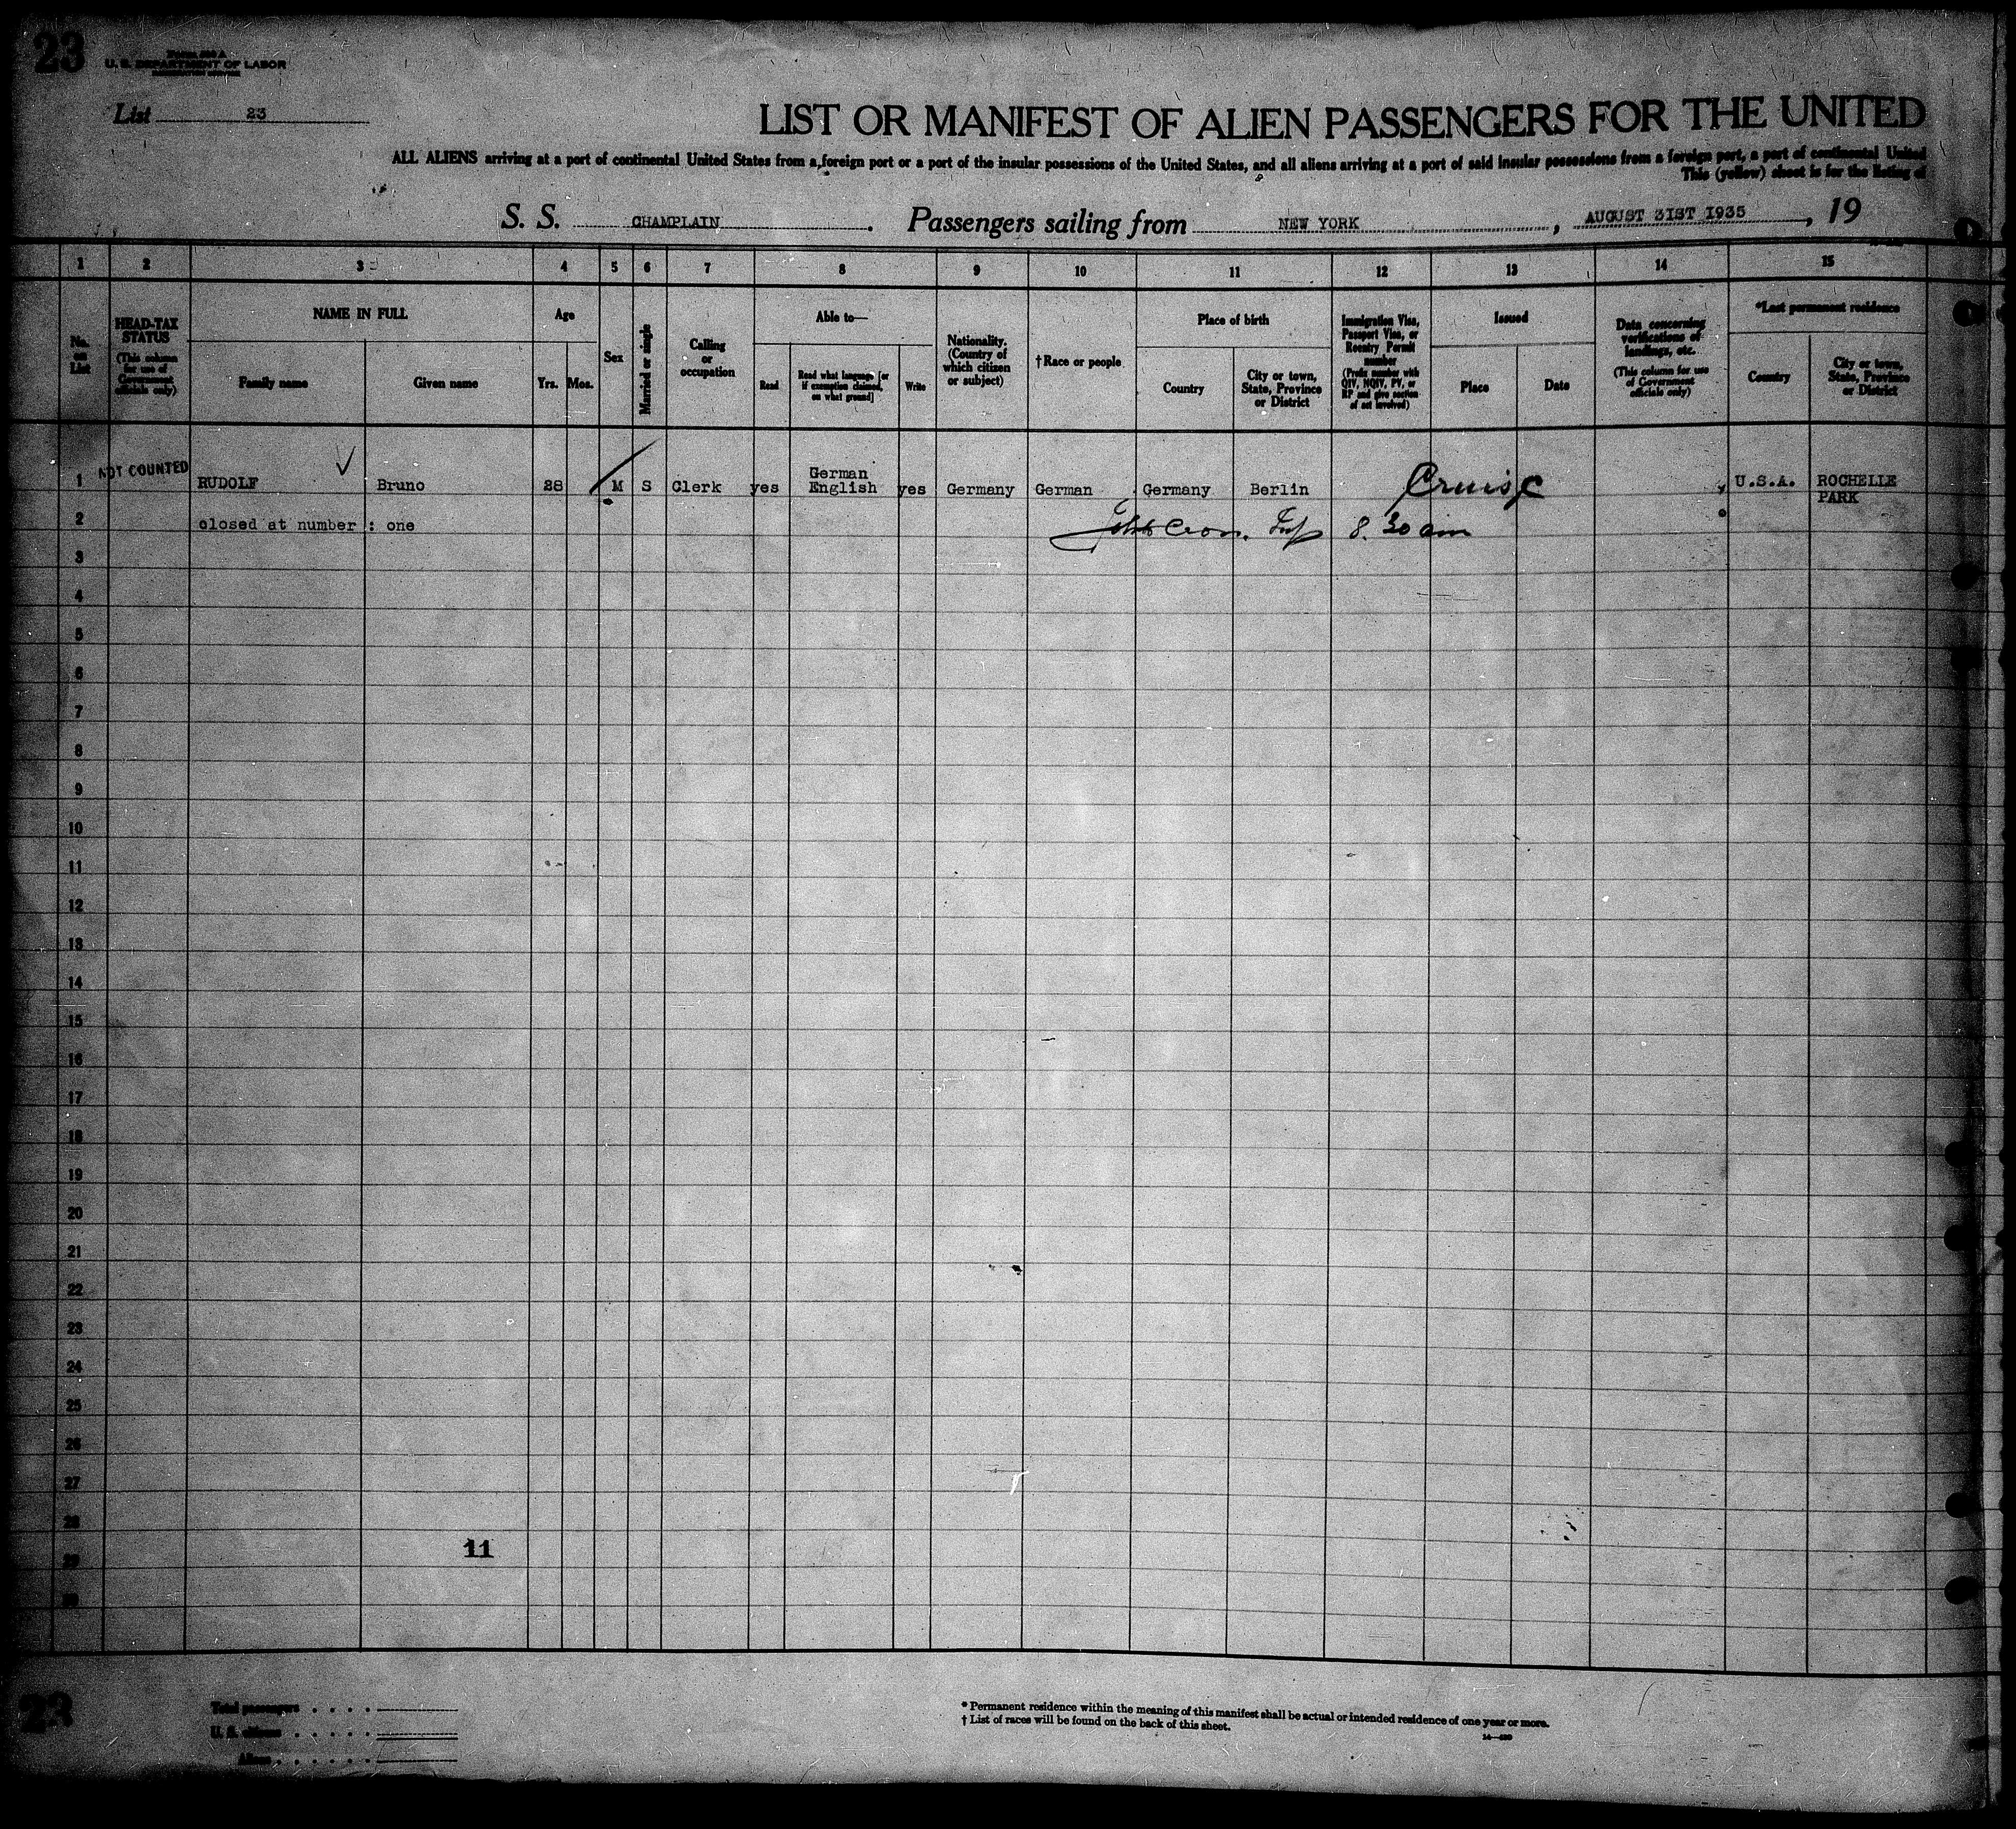 23
Form 500 A
U. S. DEPARTMENT OF LABOR
IMMIGRATION SERVICE
List 23
LIST OR MANIFEST OF ALIEN PASSENGERS FOR THE UNITED
ALL ALIENS arriving at a port of continental United States from a foreign port or a port of the insular possessions of the United States, and all aliens arriving at a port of said insular possessions from a foreign port, a port of continental United
This (yellow) sheet is for the listing of
S. S. CHAMPLAIN. Passengers sailing from NEW YORK, AUGUST 31ST 1935, 19
1 2 3 4 5 6 7 8 9 10 11 12 13 14 15
No. on List
HEAD-TAX STATUS (This column for use of Government officials only)
NAME IN FULL
Family name
Given name
Age
Yrs. Mos.
Sex
Married or single
Calling or occupation
Able to—
Read
Read what language [or if exemption claimed, on what ground]
Write
Nationality. (Country of which citizen or subject)
†Race or people
Place of birth
Country
City or town, State, Province or District
Immigration Visa, Passport Visa, or Reentry Permit number (Prefix number with QIV, NQIV, PV, or RP and give section of act involved)
Issued
Place
Date
Data concerning verifications of landings, etc. (This column for use of Government officials only)
*Last permanent residence
Country
City or town, State, Province or District
1 NOT COUNTED RUDOLF Bruno 28 M S Clerk yes German English yes Germany German Germany Berlin Cruise U.S.A. ROCHELLE PARK
2 closed at number : one 8.30 am
3
4
5
6
7
8
9
10
11
12
13
14
15
16
17
18
19
20
21
22
23
24
25
26
27
28
11
29
30
23
Total passengers
U. S. citizens
Aliens
* Permanent residence within the meaning of this manifest shall be actual or intended residence of one year or more.
† List of races will be found on the back of this sheet.